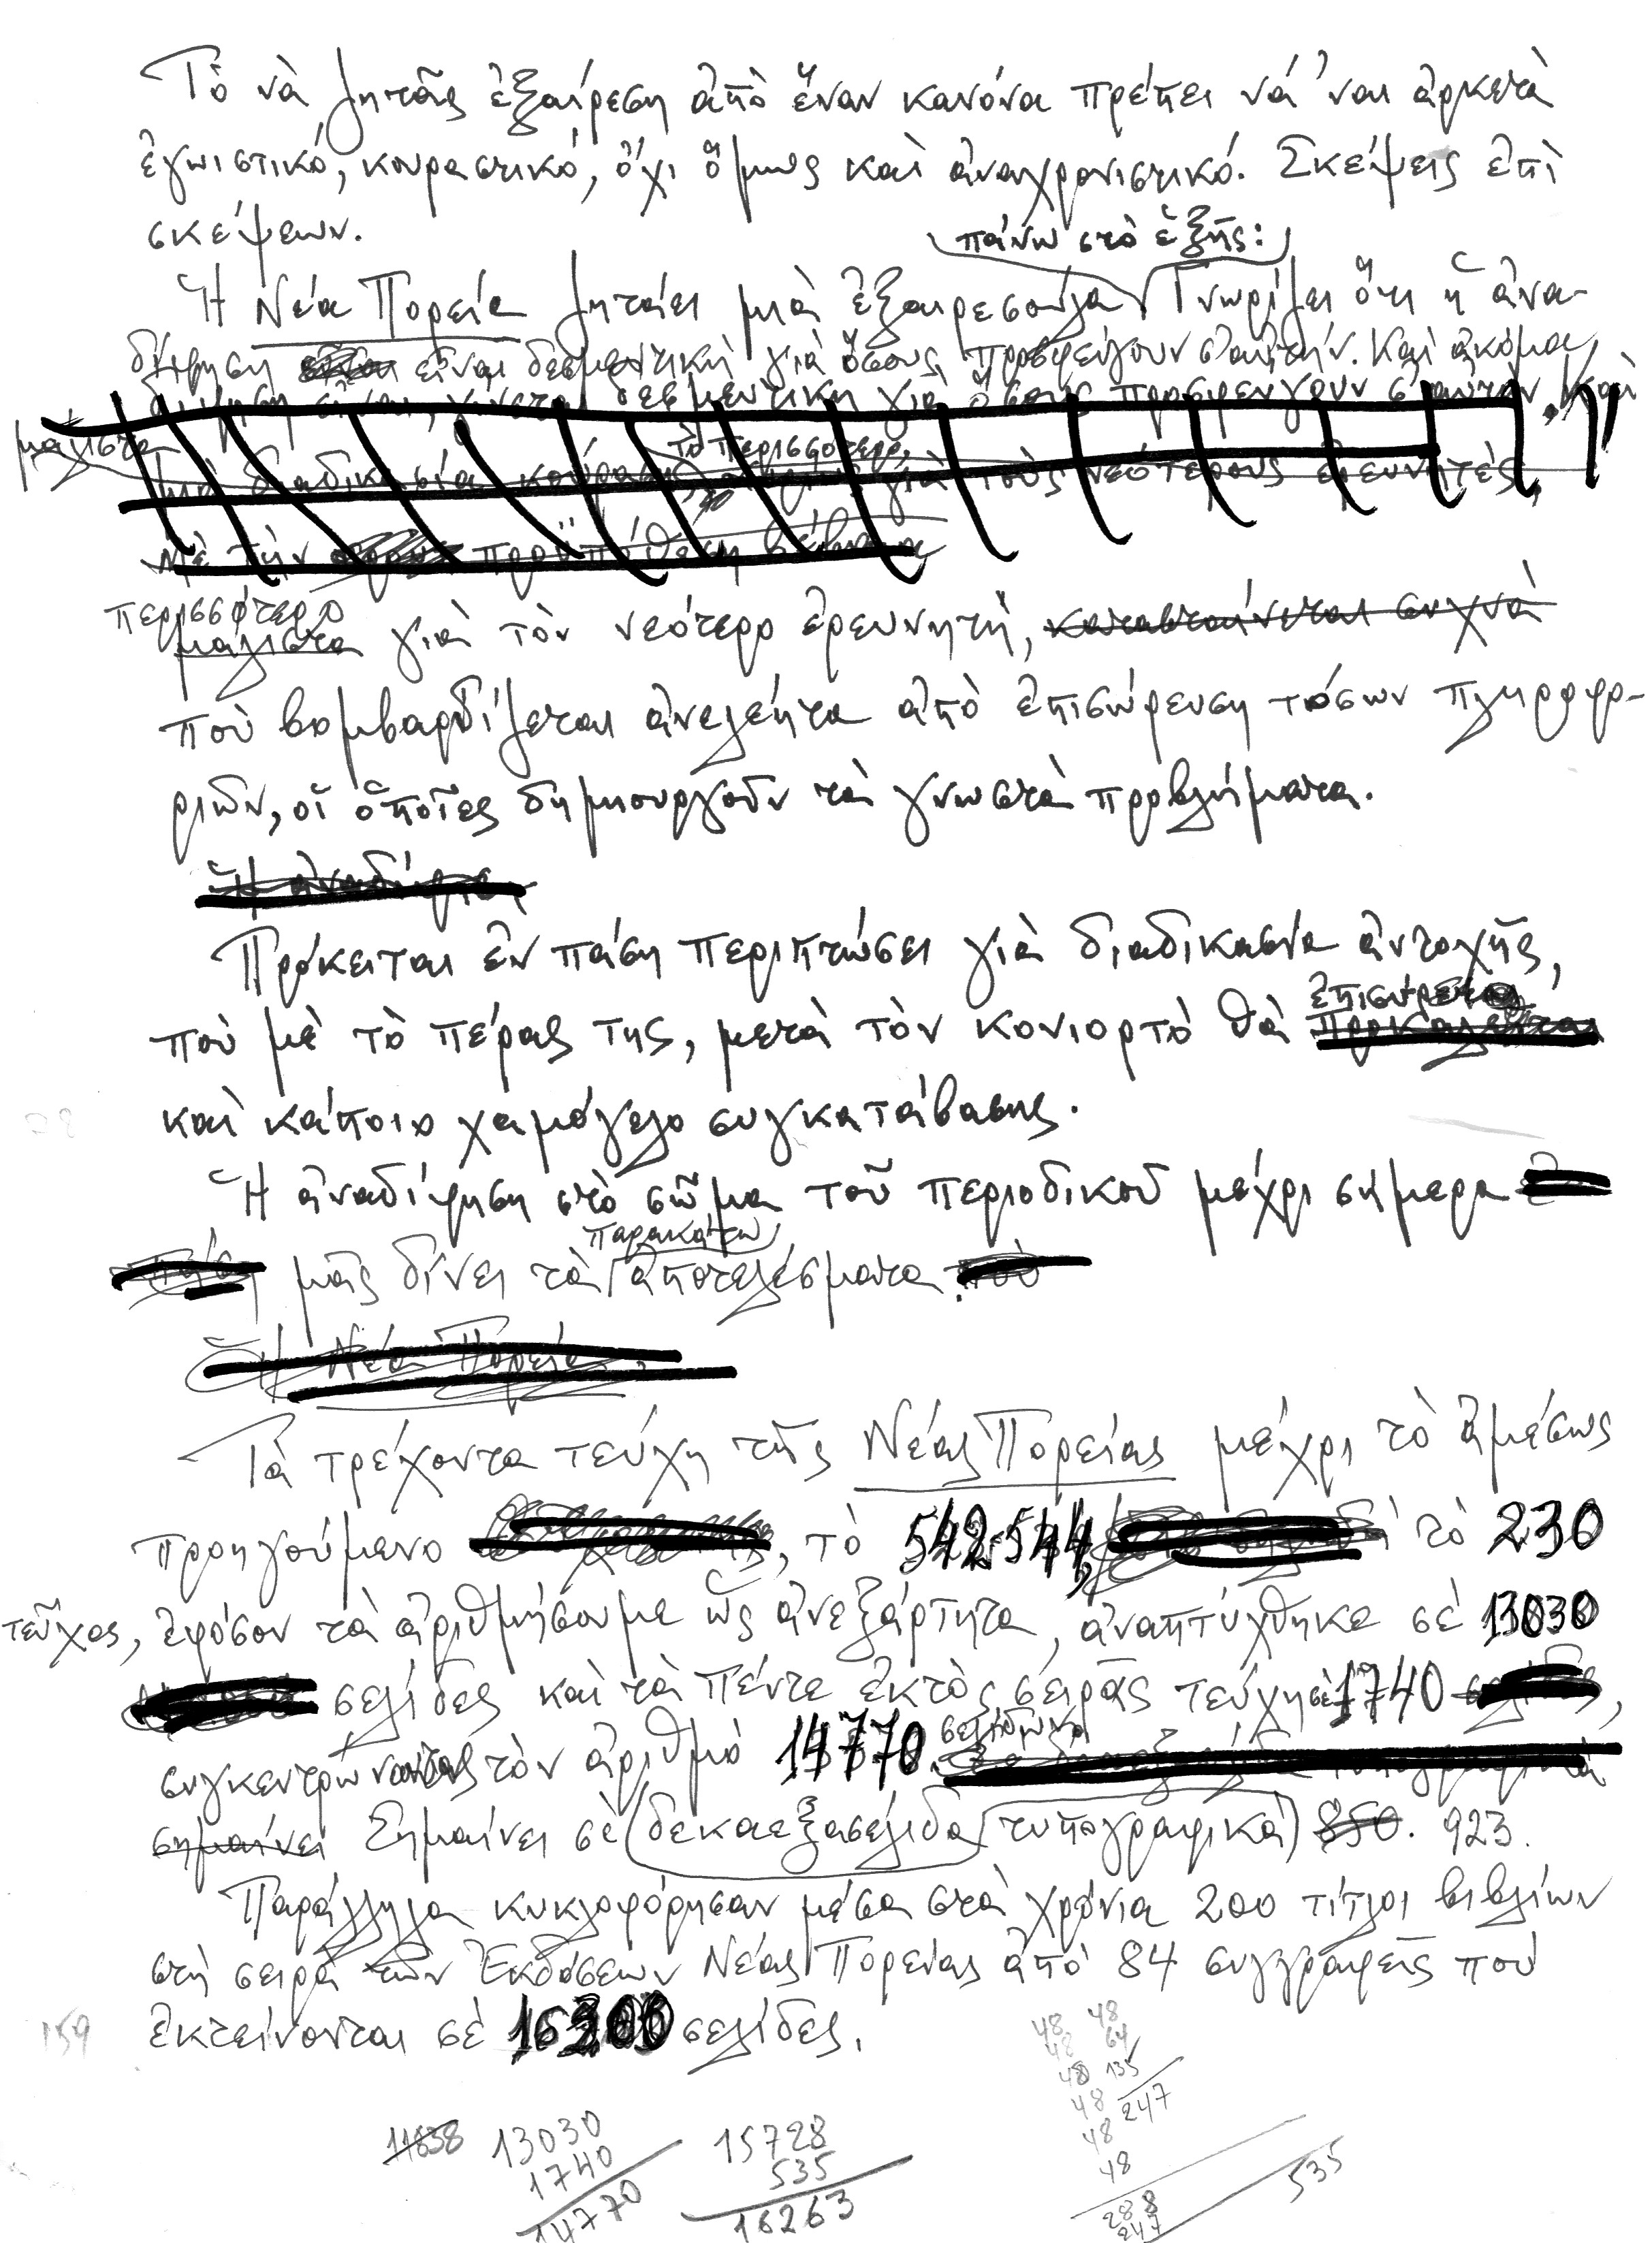 Τὸ νὰ ζητᾶς ἐξαίρεση ἀπὸ ἕναν κανόνα πρέπει νά 'ναι ἀρκετὰ
ἐγωιστικό, κουραστικό, ὄχι ὅμως καὶ ἀναχρονιστικό. Σκέψεις ἐπὶ
σκέψεων.
πάνω στὸ ἑξῆς:
Ἡ Νέα Πορεία ζητάει μιὰ ἐξαιρεσούλα Γνωρίζει ὅτι ἡ ἀνα-
δίφηση εἶναι δεσμευτικὴ γιὰ ὅσους προσφεύγουν σ' αὐτήν. Καὶ ἀκόμα
δίφηση εἶναι, γίνεται δεσμευτικὴ γιὰ ὅσους προσφεύγουν σ' αὐτήν. Καὶ
μάλιστα
τὸ περισσότερο,
μιὰ διαδικασία γιὰ τοὺς νεότερους ἐρευνητές,
μὲ τὴν προϋπόθεση βέβαια
περισσότερο
μάλιστα γιὰ τὸν νεότερο ἐρευνητή, καταβαίνεται συχνὰ
ποὺ βομβαρδίζεται ἀνελέητα ἀπὸ ἐπισώρευση τόσων πληροφο-
ριῶν, οἱ ὁποῖες δημιουργοῦν τὰ γνωστὰ προβλήματα.
Ἡ ἀναδίφηση
Πρόκειται ἐν πάση περιπτώσει γιὰ διαδικασία ἀντοχῆς,
ἐπισύρει
ποὺ μὲ τὸ πέρας της, μετὰ τὸν κονιορτὸ θὰ προκαλεῖται
καὶ κάποιο χαμόγελο συγκατάβασης.
Ἡ ἀναδίφηση στὸ σῶμα τοῦ περιοδικοῦ μέχρι σήμερα
παρακάτω
μᾶς δίνει τὰ ἀποτελέσματα. ποὺ
Ἡ Νέα Πορεία
Τὰ τρέχοντα τεύχη τῆς Νέας Πορείας μέχρι τὸ ἀμέσως
προηγούμενο , τὸ 542-544, τὸ 230
τεῦχος, ἐφόσον τὰ ἀριθμήσουμε ὡς ἀνεξάρτητα, ἀναπτύχθηκε σὲ 13030
σελίδες καὶ τὰ πέντε ἐκτὸς σειρᾶς τεύχη σὲ 1740 ,
σελίδων
συγκεντρώνοντας τὸν ἀριθμὸ 14770.
σημαίνει Σημαίνει σὲ δεκαεξασέλιδα τυπογραφικὰ 850. 923.
Παράλληλα κυκλοφόρησαν μέσα στὰ χρόνια 200 τίτλοι βιβλίων
στὴ σειρὰ τῶν Ἐκδόσεων Νέας Πορείας ἀπὸ 84 συγγραφεῖς ποὺ
159 ἐκτείνονται σὲ 16300 σελίδες.
48 48
48 64
48 135
48 247
48
48
288
247
535
11838 13030 15728
1740 535
14770 16263